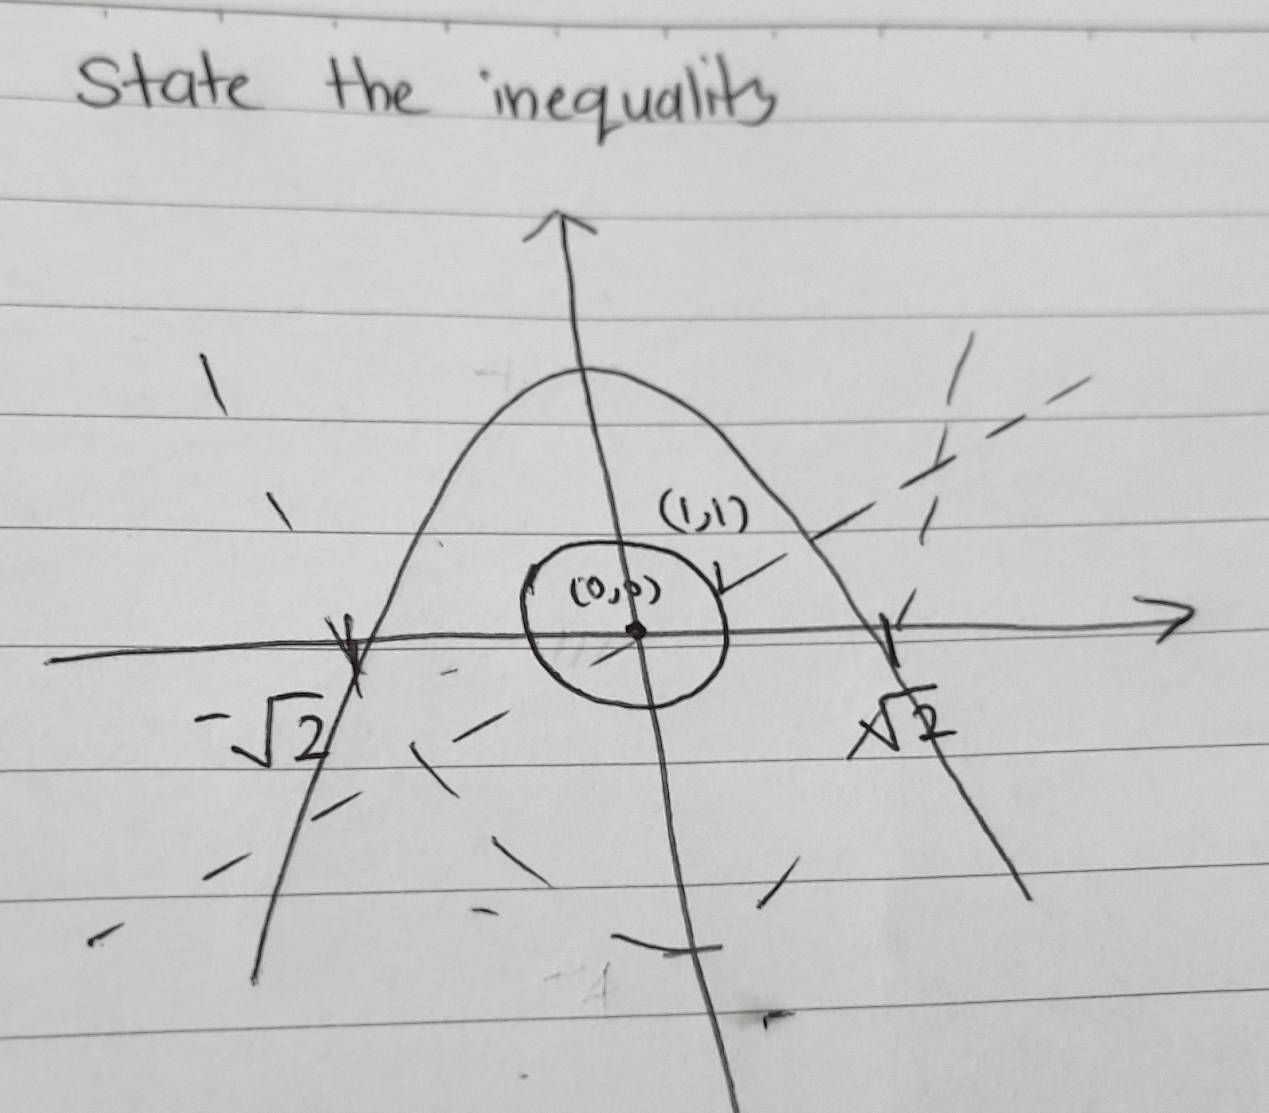 State the inequality
(1,1)
(0,0)
-√2
√2